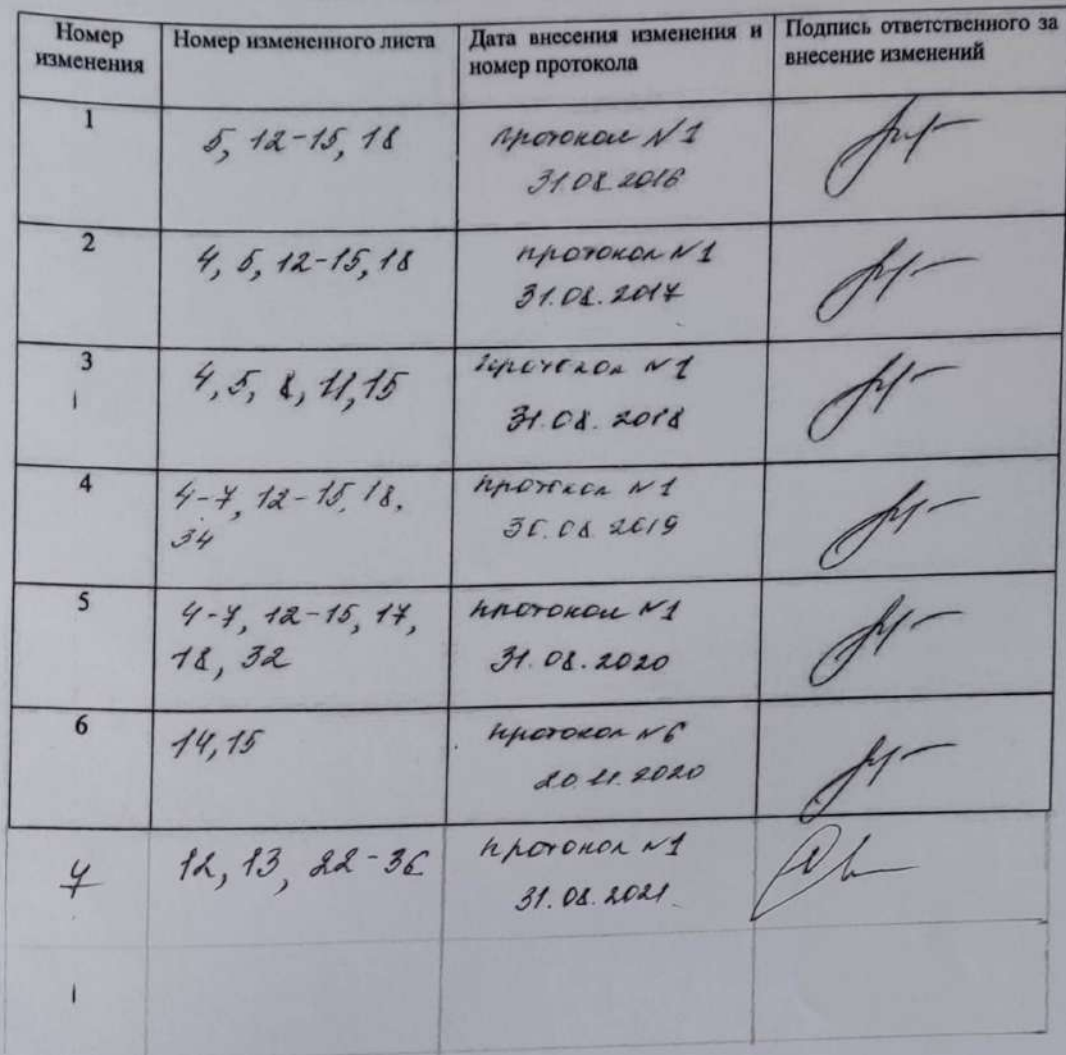 Номер изменения
Номер измененного листа
Дата внесения изменения и номер протокола
Подпись ответственного за внесение изменений
1
5, 12-15, 18
протокол №1
31.08.2016
2
4, 5, 12-15, 18
протокол №1
31.08.2017
3
4, 5, 8, 11, 15
протокол №1
31.08.2018
4
4-7, 12-15, 18,
34
протокол №1
30.08.2019
5
4-7, 12-15, 17,
18, 32
протокол №1
31.08.2020
6
14, 15
протокол №6
20.11.2020
7
12, 13, 22-36
протокол №1
31.08.2021